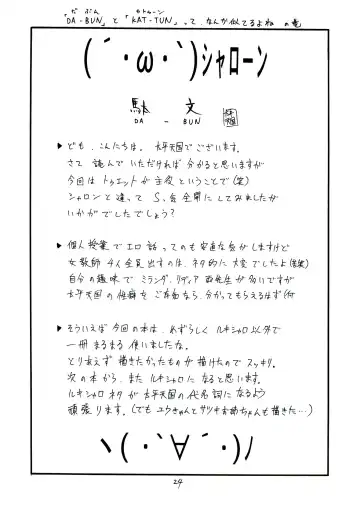 「DA-BUN」と「KAT-TUN」って、なんか似てるよね の巻
(´・ω・`)シャローン
駄 文
DA - BUN
▶ ども、こんにちは。太平天国でございます。
さて 読んでいただければ分かると思いますが
今回は トゥエットが主役ということで(笑)
シャロンと違って S、会全開にしてみましたが
いかがでしたでしょう?
▶ 個人授業でエロ話ってのも安直な気がしますけど
女教師4人全員出すのは、ネタ的に大変でしたよ(苦笑)
自分の趣味で ミランダ、リディア両先生が多いですが
太平天国の性癖をご存知なら、分かってもらえるはず(ry
▶ そういえば今回の本は、めずらしく ルキシャロ以外で
一冊まるまる使いましたな。
とりあえず 描きたかったものが描けたので スッキリ。
次の本から、また ルキシャロになると思います。
ルキシャロネタが太平天国の代名詞になるよう
頑張ります。(でも ユウきゅんとサツキお姉ちゃんも描きた…)
ヽ(・`∀´・)ノ
24